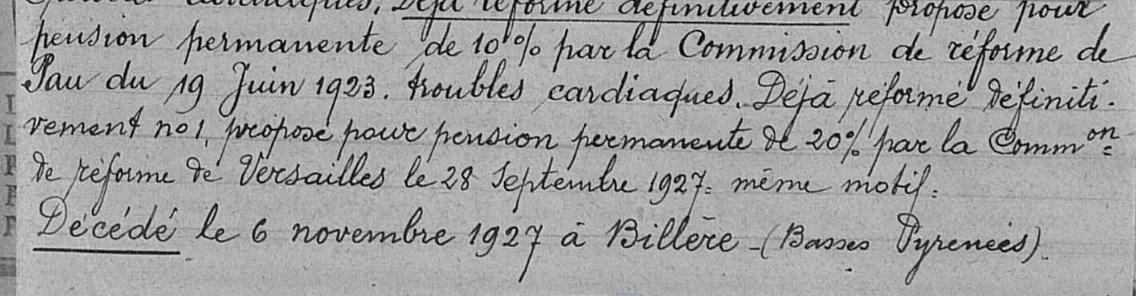 cardiaques. Déjà réformé définitivement proposé pour
pension permanente de 10% par la Commission de réforme de
Pau du 19 Juin 1923. troubles cardiaques. Déjà réformé définiti-
vement no 1, proposé pour pension permanente de 20% par la Comm on
de réforme de Versailles le 28 Septembre 1927. même motif.
Décédé le 6 novembre 1927 à Billère - (Basses Pyrénées).